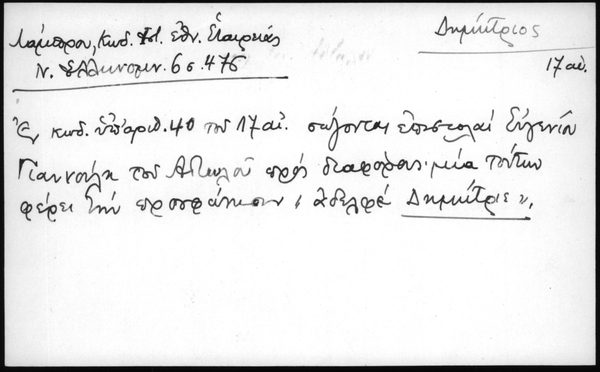 Λάμπρου, Κωδ. Ἱστ. Ἐθν. Ἑταιρείας
Ν. Ἑλληνομν. 6 σ. 476
Δημήτριος
17 αἰ.
Ἐν κωδ. ὑπ' ἀριθ. 40 τοῦ 17 αἰ. σώζονται ἐπιστολαὶ Εὐγενίου
Γιαννούλη τοῦ Αἰτωλοῦ πρὸς διαφόρους· μία τούτων
φέρει τὴν προσφώνησιν « ἀδελφὲ Δημήτριε ».